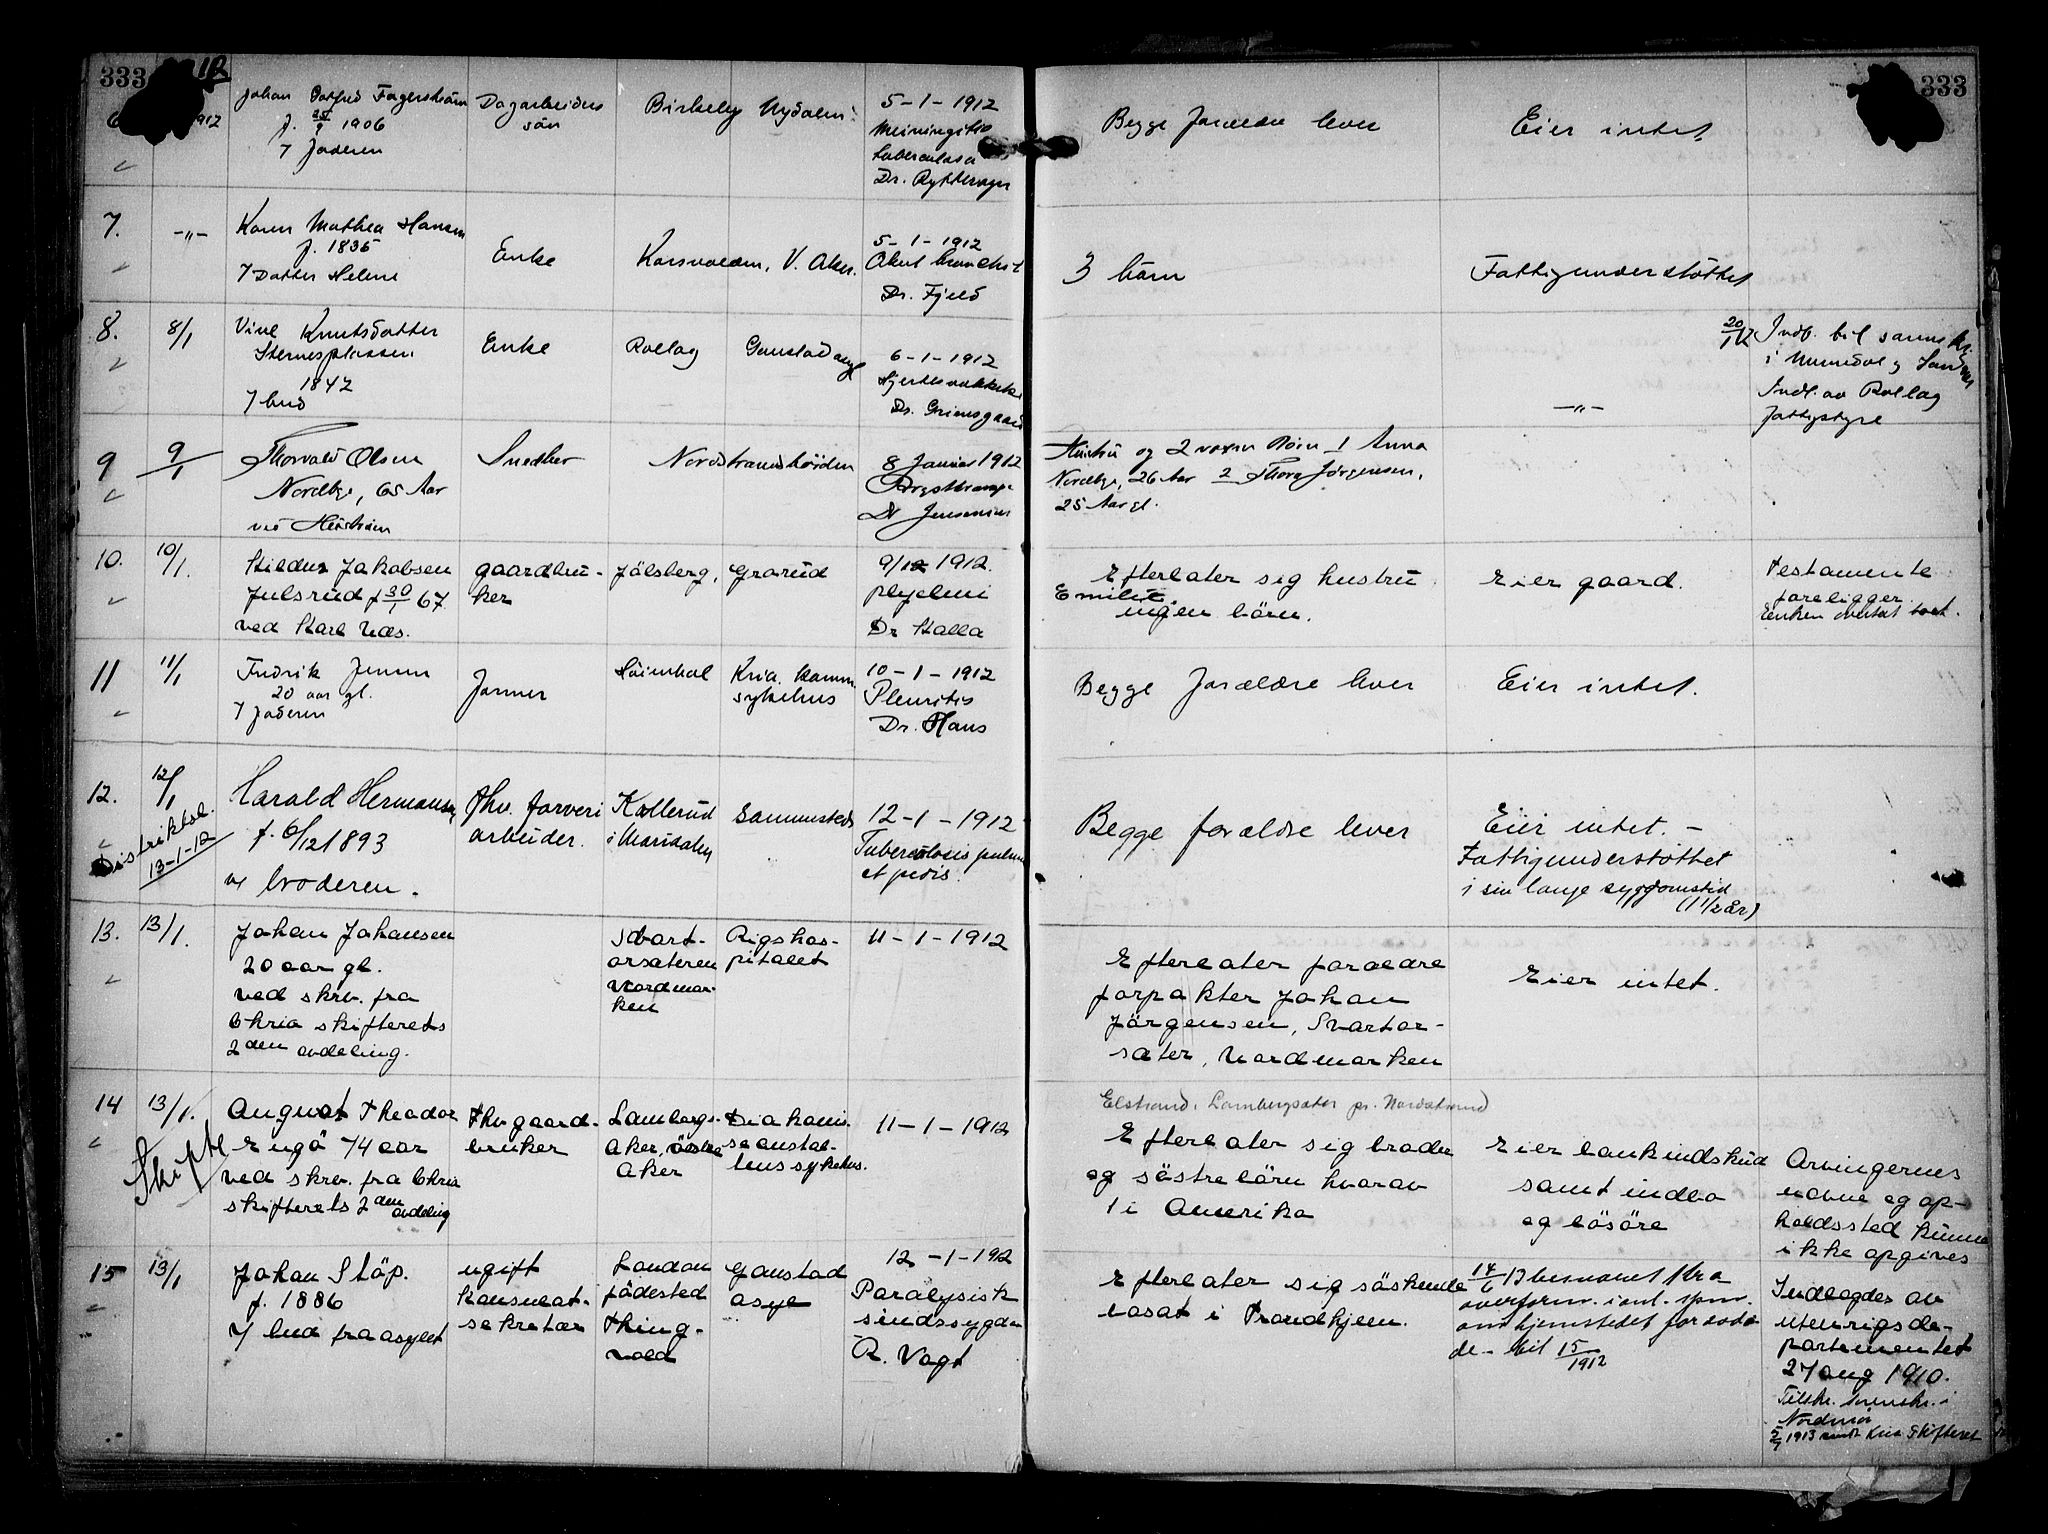 333
333
6
1912
Johan Fagerström
f. 25/9 1906
/ faderen
Dagarbeiders
sön
Birkeby
Nydalen
5-1-1912
Meiningitis
tuberculosa
Dr. Ryttervager
Begge foreldre lever
Eier intet
7.
-"-
Karen Mathea Hansen
f. 1835
/ Datter Helene
Enke
Korsvolden, V. Aker.
5-1-1912
Akut bronchit
Dr. Fjeld
3 börn
Fattigunderstöttet
8.
8/1
Knutsdatter
1842
/ bud
Enke
Rollag
Gaustad asyl
6-1-1912
Dr. Grimsgaard
-"-
20/1 12 Indb. til
i Numedal og
Indl. av Rollag
fattigstyre
9
9/1
Thorvald Olsen
Nordbye, 65 Aar
ved
Snedker
Nordstrandshöiden
8 Januar 1912
Dr Jensenius
Hustru og 2 voxne Börn 1 Anna
Nordbye, 26 Aar 2 Thora Jörgensen,
25 Aar gl.
10.
10/1.
Hildus Jakobsen
Julsrud f 30/1 67
ved Karl Næs.
gaardbru-
ker
Jölsberg,
Grorud
9/12 1912.
Dr Kalla
Efterlater sig hustru
Emilie
ingen börn.
Eier gaard.
Testamente
foreligger.
Enken overtat boet.
11
11/1
Fredrik Jensen
20 aar gl.
/ faderen
Former
Höimhal
Kria. komm.
sykehus
10-1-1912
Pleuritis
Dr. Hans
Begge foreldre lever
Eier intet.
12.
12/1
Distriktsl.
13-1-12
Harald Hermansen
f. 6/12 1893
v/ broderen.
fhv. farveri
arbeider.
Kallerud
i Maridalen
sammesteds
12-1-1912
Tuberculosis pulm.
et pedis.
Begge forældre lever
Eier intet. -
Fattigunderstöttet
i sin lange sygdomstid
(1 1/2 år)
13.
13/1.
Johan Johansen
20 aar gl.
ved skrv. fra
Chria skifterets
2den avdeling.
Svart-
orsæteren
Nordmar-
ken
Rigshos-
pitalet
11-1-1912
Efterlater forældre
forpakter Johan
Jörgensen, Svartor-
sæter, Nordmarken
Eier intet.
14
13/1.
Skifte
August Theodor
Engö 74 aar
ved skrv. fra Chria
skifterets 2den avdeling
fhv gaard-
bruker
Lambergs-
Aker, östre
Aker
Diakonis-
seanstal-
tens sykehus.
11-1-1912
Elstrand, Lambergsæter pr. Nordstrand
Efterlater sig broder
og söstre börn hvorav
1 i Amerika
Eier bankindskud
samt indbo
og lösöre
Arvingernes
navne og op-
holdssted kunne
ikke opgives
15
13/1
Johan Stöp.
f. 1886
/ bud fra asylet
ugift
konsulat-
sekretær
London
födested
Thing-
vold
Gaustad
asyl
12-1-1912
Paralysisk
sindssygdom
R. Vogt
Efterlater sig söskende
bosat i Trondhjem.
17/6 13 besvaret fra
overform. i anl. spm.
om hjemstedet for avdö-
de - bil 15/1912
Indlagdes av
utenrigsde-
partementet
27 aug 1910.
Tilskr. sorenskr. i
Nordmör
5/7 1913 samt Kria Skifteret